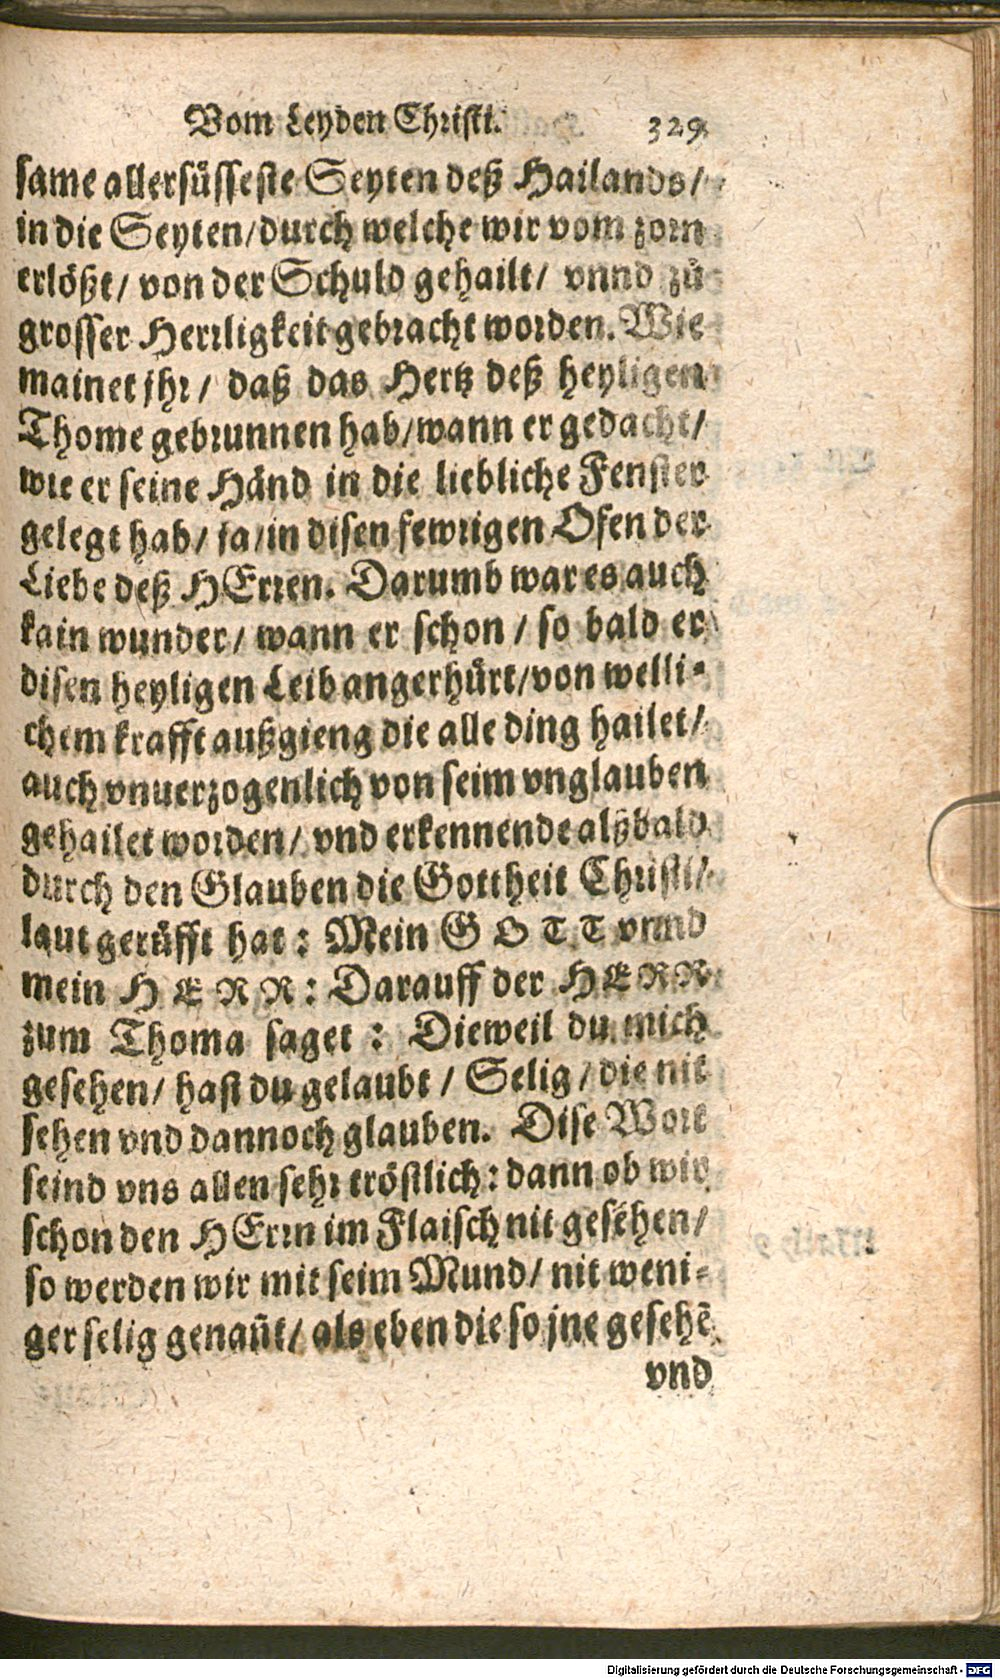 Vom Leyden Christi. 329.
same allersüsseste Seyten deß Hailands/
in die Seyten/durch welche wir vom zorn
erlößt/ von der Schuld gehailt/ vnnd zů
grosser Herrligkeit gebracht worden. Wie
mainet jhr/ daß das Hertz deß heyligen
Thome gebrunnen hab/wann er gedacht/
wie er seine Händ in die liebliche Fenster
gelegt hab/ ja/in disen fewrigen Ofen der
Liebe deß HErren. Darumb war es auch
kain wunder/ wann er schon/ so bald er
disen heyligen Leib angerhürt/von welli-
chem krafft außgieng die alle ding hailet/
auch vnuerzogenlich von seim vnglauben
gehailet worden/ vnd erkennende alßbald
durch den Glauben die Gottheit Christi/
laut gerüfft hat: Mein GOTT vnnd
mein HERR: Darauff der HERR
zum Thoma saget: Dieweil du mich
gesehen/ hast du gelaubt/ Selig/ die nit
sehen vnd dannoch glauben. Dise Wort
seind vns allen sehr tröstlich: dann ob wir
schon den HErrn im Flaisch nit gesehen/
so werden wir mit seim Mund/ nit weni-
ger selig genañt/ als eben die so jne gesehẽ
vnd
Digitalisierung gefördert durch die Deutsche Forschungsgemeinschaft - DFG